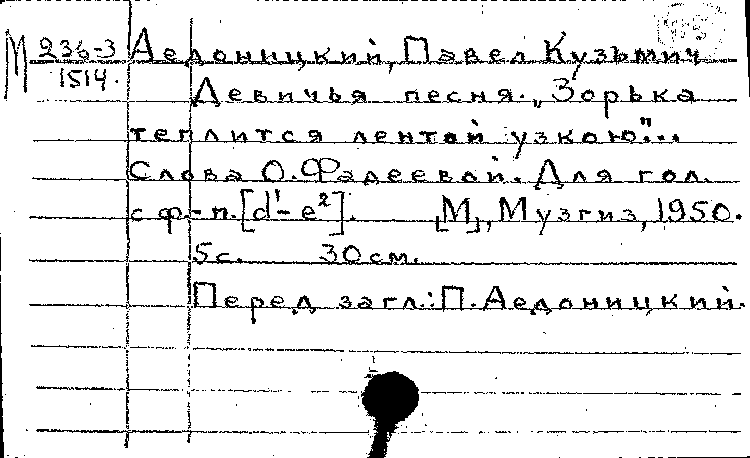 М 236-3 Аедоницкий, Павел Кузьмич
1514.
Девичья песня. „Зорька
теплится лентой узкою"...
Слова О. Фадеевой. Для гол.
с ф.-п. [d¹- e²]. [М], Музгиз, 1950.
5 с. 30 см.
Перед загл.: П. Аедоницкий.